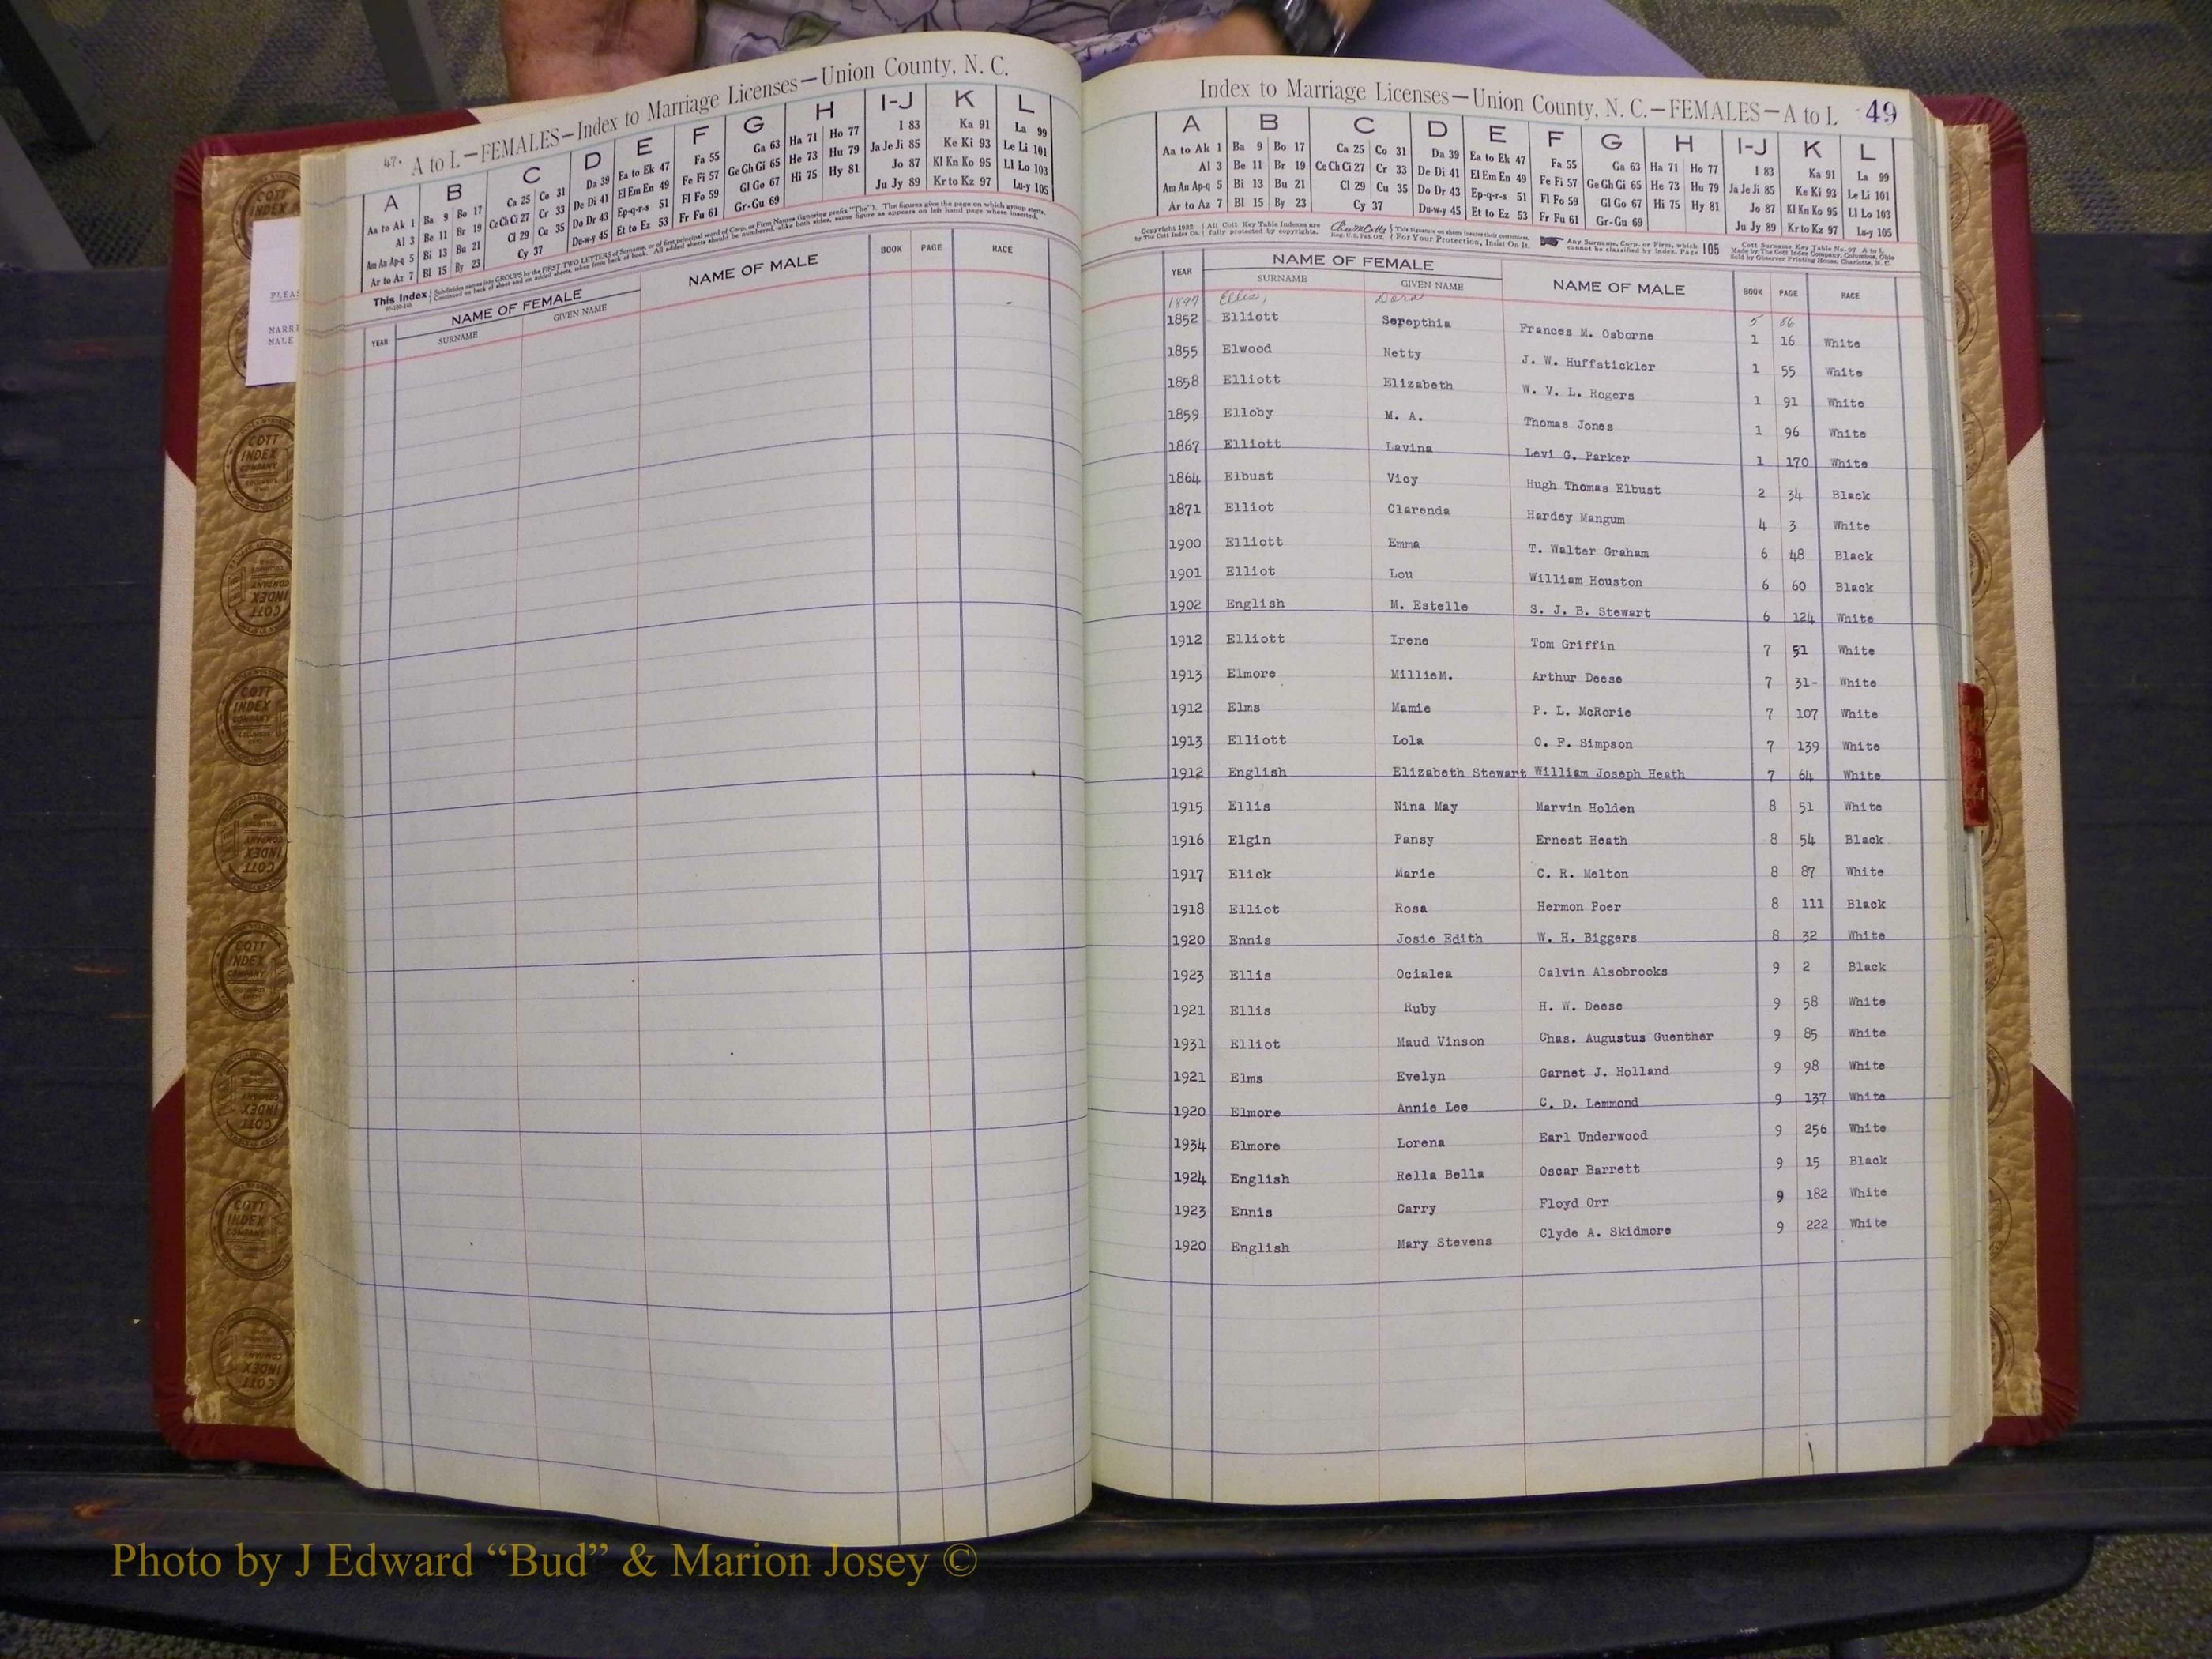 47. A to L—FEMALES—Index to Marriage Licenses—Union County, N. C.
A B C D E F G H I-J K L
Aa to Ak 1 Ba 9 Bo 17 Ca 25 Co 31 Da 39 Ea to Ek 47 Fa 55 Ga 63 Ha 71 Ho 77 I 83 Ka 91 La 99
Al 3 Be 11 Br 19 Ce Ch Ci 27 Cr 33 De Di 41 El Em En 49 Fe Fi 57 Ge Gh Gi 65 He 73 Hu 79 Ja Je Ji 85 Ke Ki 93 Le Li 101
Am An Ap-q 5 Bi 13 Bu 21 Cl 29 Cu 35 Do Dr 43 Ep-q-r-s 51 Fl Fo 59 Gl Go 67 Hi 75 Hy 81 Jo 87 Kl Kn Ko 95 Ll Lo 103
Ar to Az 7 Bl 15 By 23 Cy 37 Du-w-y 45 Et to Ez 53 Fr Fu 61 Gr-Gu 69 Ju Jy 89 Kr to Kz 97 Lu-y 105
This Index Subdivides names into GROUPS by the FIRST TWO LETTERS of Surname, or of first principal word of Corp. or Firm Names (ignoring prefix "The"). The figures give the page on which group starts.
Continued on back of sheet and on added sheets, taken from back of book. All added sheets should be numbered, alike both sides, same figure as appears on left hand page where inserted.
YEAR NAME OF FEMALE NAME OF MALE BOOK PAGE RACE
SURNAME GIVEN NAME
PLEAS
MARRI
MALE
Index to Marriage Licenses—Union County, N. C.—FEMALES—A to L 49
A B C D E F G H I-J K L
Aa to Ak 1 Ba 9 Bo 17 Ca 25 Co 31 Da 39 Ea to Ek 47 Fa 55 Ga 63 Ha 71 Ho 77 I 83 Ka 91 La 99
Al 3 Be 11 Br 19 Ce Ch Ci 27 Cr 33 De Di 41 El Em En 49 Fe Fi 57 Ge Gh Gi 65 He 73 Hu 79 Ja Je Ji 85 Ke Ki 93 Le Li 101
Am An Ap-q 5 Bi 13 Bu 21 Cl 29 Cu 35 Do Dr 43 Ep-q-r-s 51 Fl Fo 59 Gl Go 67 Hi 75 Hy 81 Jo 87 Kl Kn Ko 95 Ll Lo 103
Ar to Az 7 Bl 15 By 23 Cy 37 Du-w-y 45 Et to Ez 53 Fr Fu 61 Gr-Gu 69 Ju Jy 89 Kr to Kz 97 Lu-y 105
by The Cott Index Co. All Cott Key Table Indexes are fully protected by copyrights. For Your Protection, Insist On It. Any Surname, Corp. or Firm, which cannot be classified by Index, Page 105
Made by The Cott Index Company, Columbus, Ohio
Sold by Observer Printing House, Charlotte, N. C.
YEAR NAME OF FEMALE NAME OF MALE BOOK PAGE RACE
SURNAME GIVEN NAME
1897 Ellis, Dora 5 56
1852 Elliott Serepthia Frances M. Osborne 1 16 White
1855 Elwood Netty J. W. Huffstickler 1 55 White
1858 Elliott Elizabeth W. V. L. Rogers 1 91 White
1859 Elloby M. A. Thomas Jones 1 96 White
1867 Elliott Lavina Levi G. Parker 1 170 White
1864 Elbust Vicy Hugh Thomas Elbust 2 34 Black
1871 Elliot Clarenda Hardey Mangum 4 3 White
1900 Elliott Emma T. Walter Graham 6 48 Black
1901 Elliot Lou William Houston 6 60 Black
1902 English M. Estelle S. J. B. Stewart 6 124 White
1912 Elliott Irene Tom Griffin 7 51 White
1913 Elmore MillieM. Arthur Deese 7 31- White
1912 Elms Mamie P. L. McRorie 7 107 White
1913 Elliott Lola O. F. Simpson 7 139 White
1912 English Elizabeth Stewart William Joseph Heath 7 64 White
1915 Ellis Nina May Marvin Holden 8 51 White
1916 Elgin Pansy Ernest Heath 8 54 Black
1917 Elick Marie C. R. Melton 8 87 White
1918 Elliot Rosa Hermon Poer 8 111 Black
1920 Ennis Josie Edith W. H. Biggers 8 32 White
1923 Ellis Ocialea Calvin Alsobrooks 9 2 Black
1921 Ellis Ruby H. W. Deese 9 58 White
1931 Elliot Maud Vinson Chas. Augustus Guenther 9 85 White
1921 Elms Evelyn Garnet J. Holland 9 98 White
1920 Elmore Annie Lee C. D. Lemmond 9 137 White
1934 Elmore Lorena Earl Underwood 9 256 White
1924 English Rella Bella Oscar Barrett 9 15 Black
1923 Ennis Carry Floyd Orr 9 182 White
1920 English Mary Stevens Clyde A. Skidmore 9 222 White
COTT INDEX COMPANY
Photo by J Edward “Bud” & Marion Josey ©